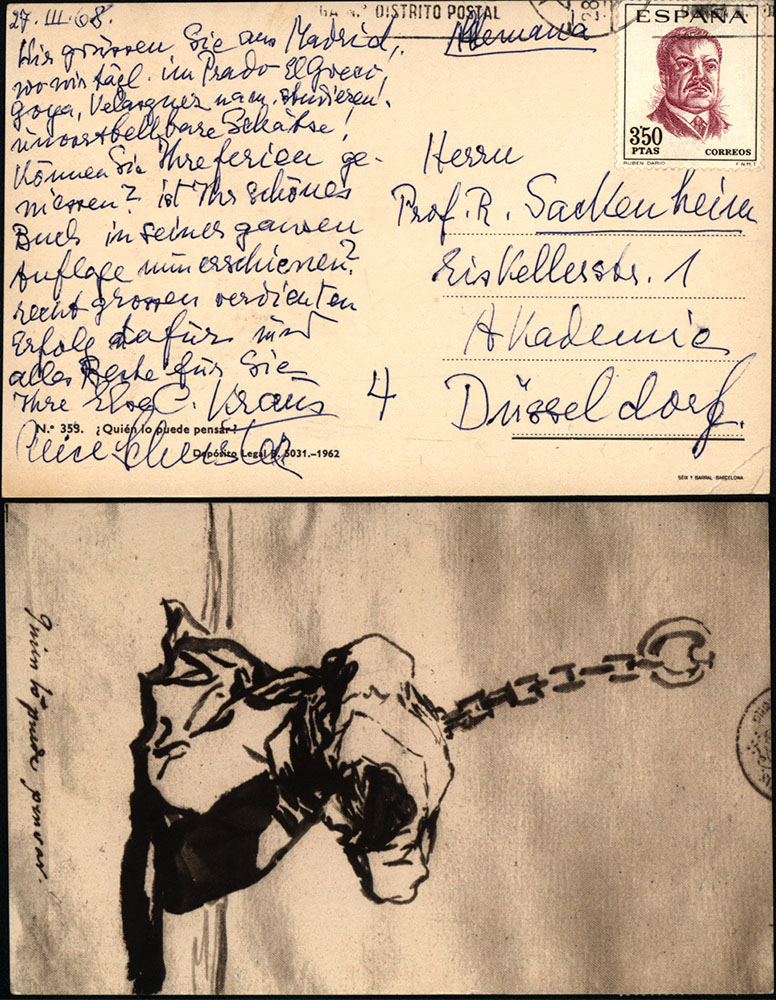 27. III. 68.
Wir grüssen Sie aus Madrid,
wo wir tägl. im Prado El Greco,
Goya, Velasquez nam. studieren!
unvorstellbare Schätze!
Können Sie Ihre Ferien ge-
niessen? ist Ihr schönes
Buch in seiner ganzen
Auflage nun erschienen?
recht grossen verdienten
Erfolg dafür und
alles Beste für Sie
Ihre C. Kraus
N.º 353. ¿Quién lo puede pensar?
Depósito Legal B. 5031.-1962
DISTRITO POSTAL
Alemania
ESPAÑA
3'50
PTAS
CORREOS
RUBEN DARIO
F.N.M.T.
Herrn
Prof. R. Sackenheim
Eiskellerstr. 1
Akademie
4 Düsseldorf.
SEIX Y BARRAL - BARCELONA
quien lo puede pensar.